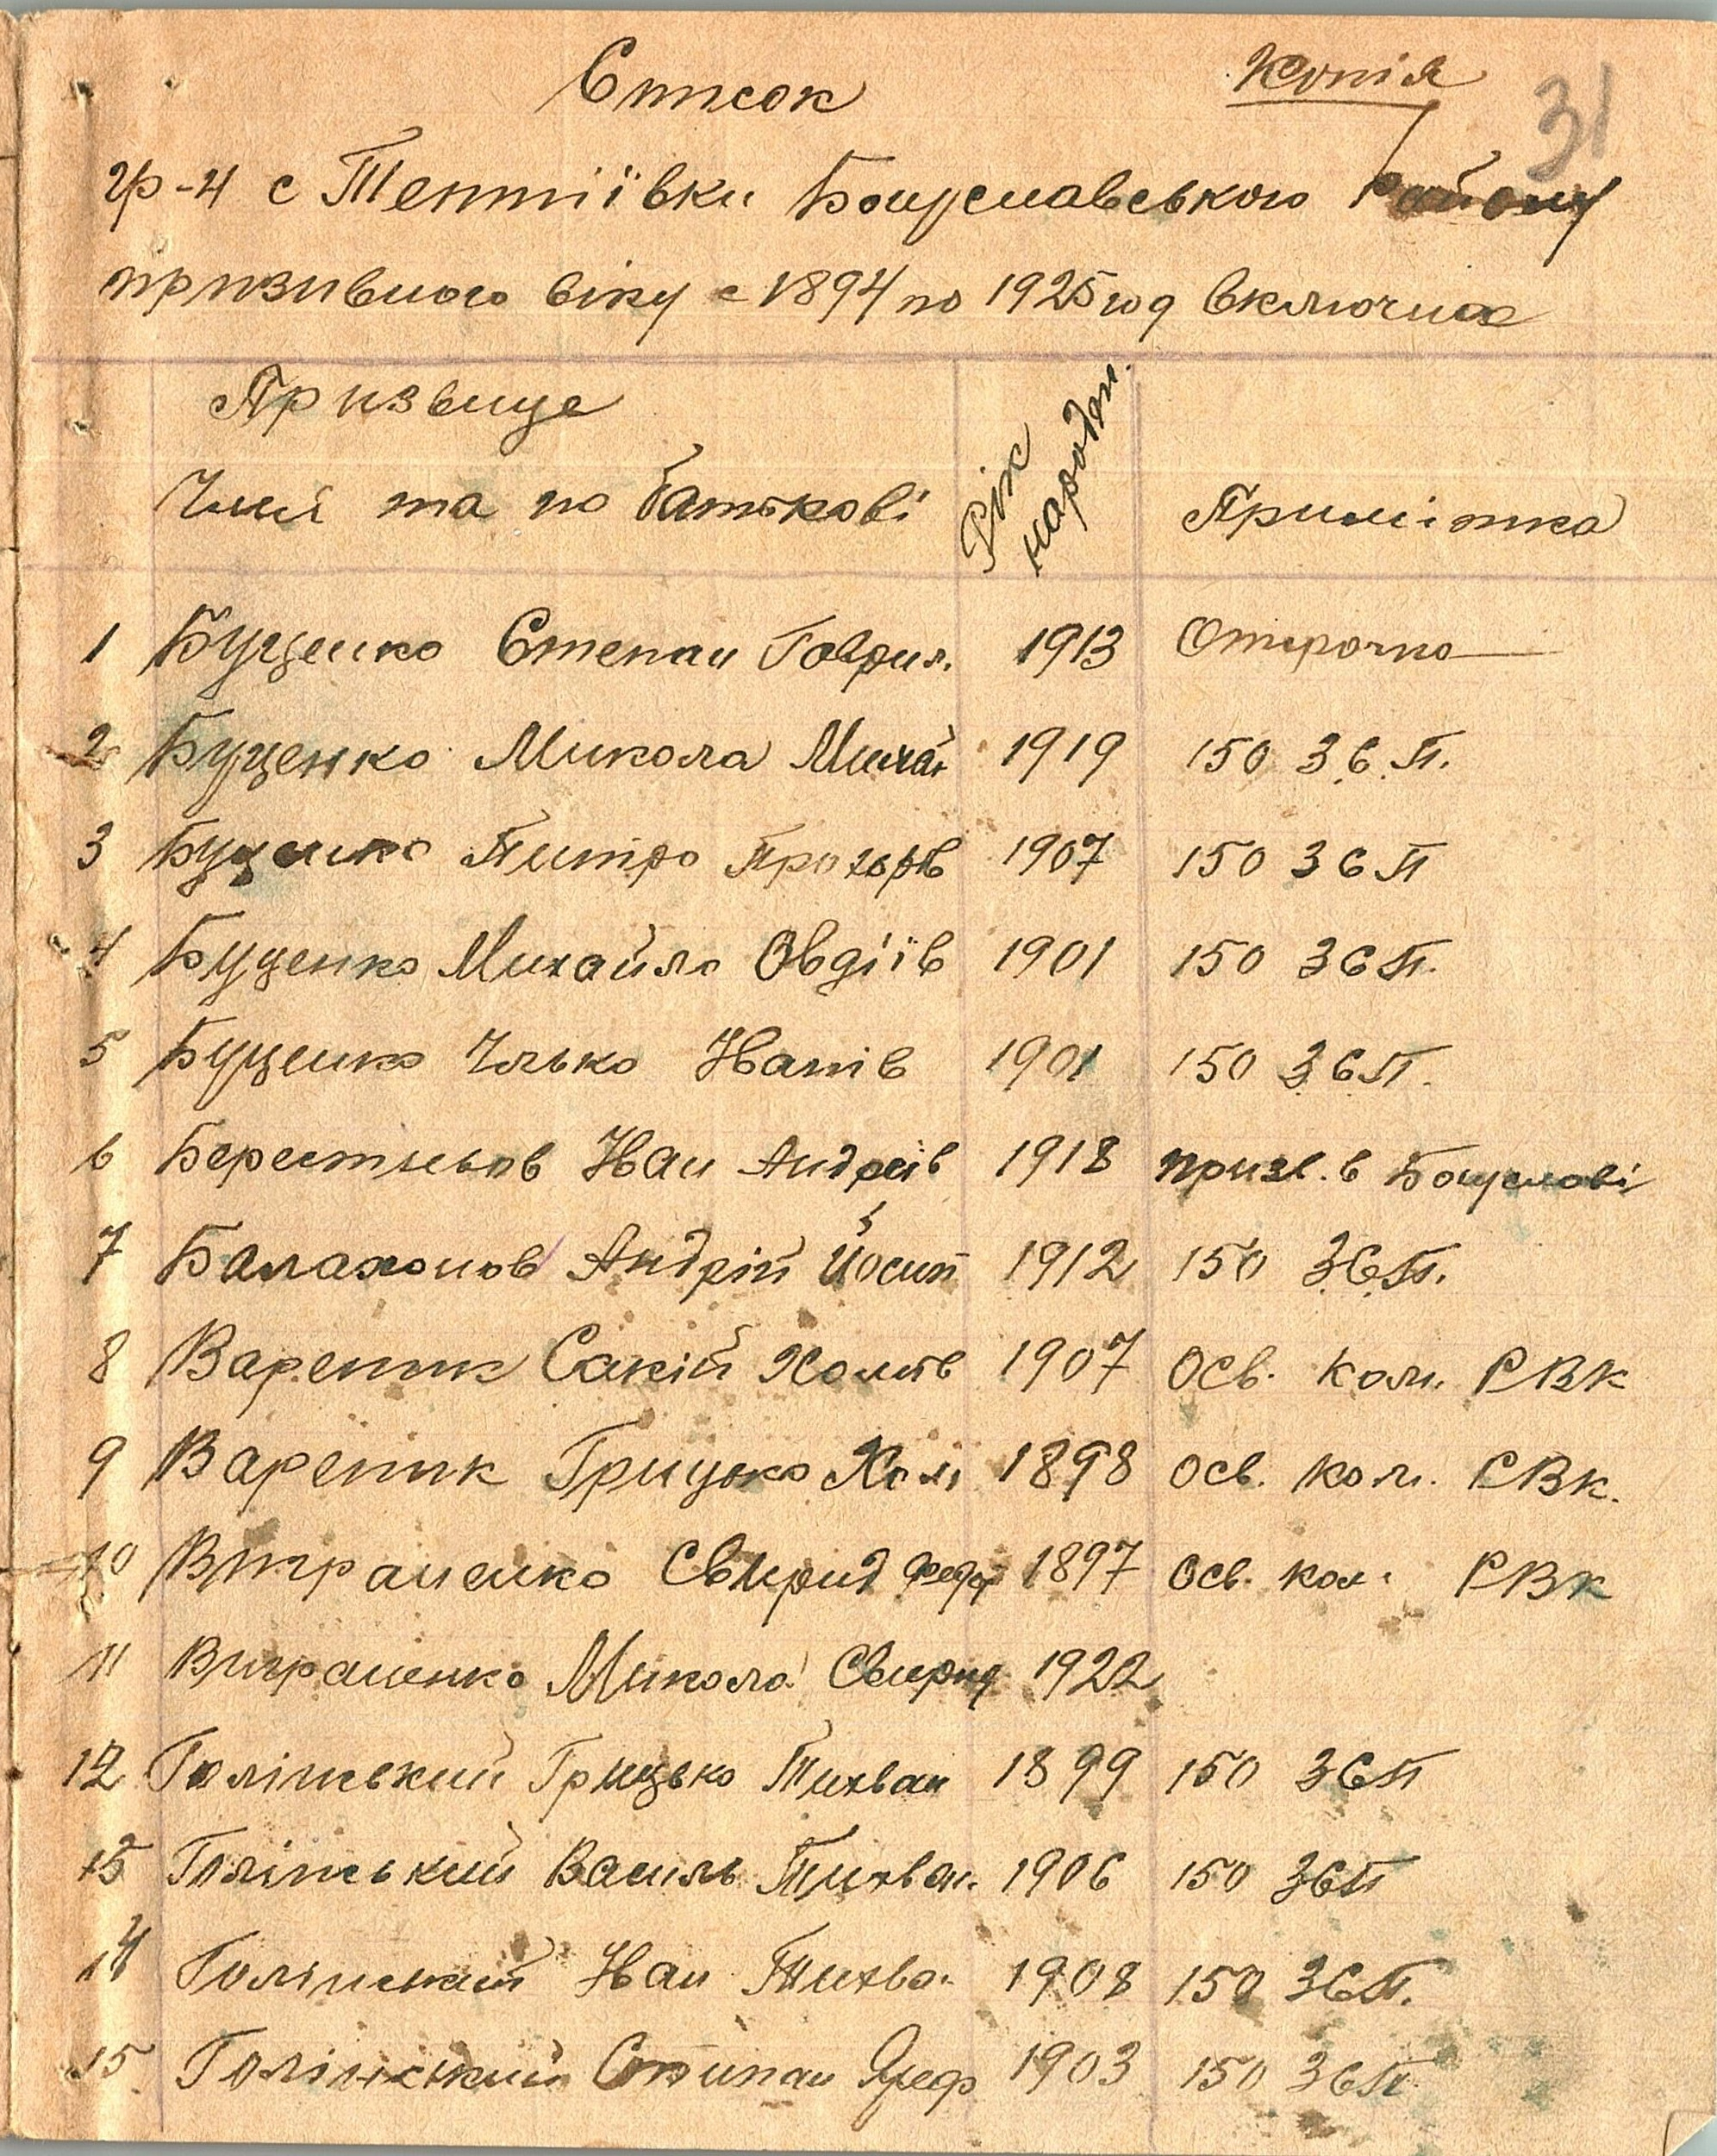 Список
Копія
31
гр-н с Тептіївки Богуславського Району
призивного віку с 1894 по 1925 год включно
Призвище
Имя та по батькові
Рік народжн.
Примітка
1 Буценко Степан Гаврил. 1913 Отсрочка
2 Буценко Микола Михай 1919 150 З.С.П.
3 Буценко Питро Прохорів 1907 150 ЗСП
4 Буценко Михайло Овдіїв 1901 150 ЗСП.
5 Буценко Илько Іванів 1901 150 ЗСП.
6 Берестньов Іван Андреїв 1918 призв. в Богуславі
7 Балахонов Андрій Йосип 1912 150 З.С.П.
8 Вареник Сакій Хомів 1907 Осв. ком. РВК
9 Вареник Грицько Хом 1898 Осв. ком. РВК.
10 Виграненко Свирид Федор 1897 Осв. ком. РВК
11 Виграненко Микола Свирид 1922
12 Голінський Грицько Тихван 1899 150 ЗСП
13 Голінський Василь Тихван. 1906 150 ЗСП
14 Голінський Іван Тихва. 1908 150 ЗСП.
15 Голінський Стипан 1903 150 ЗСП